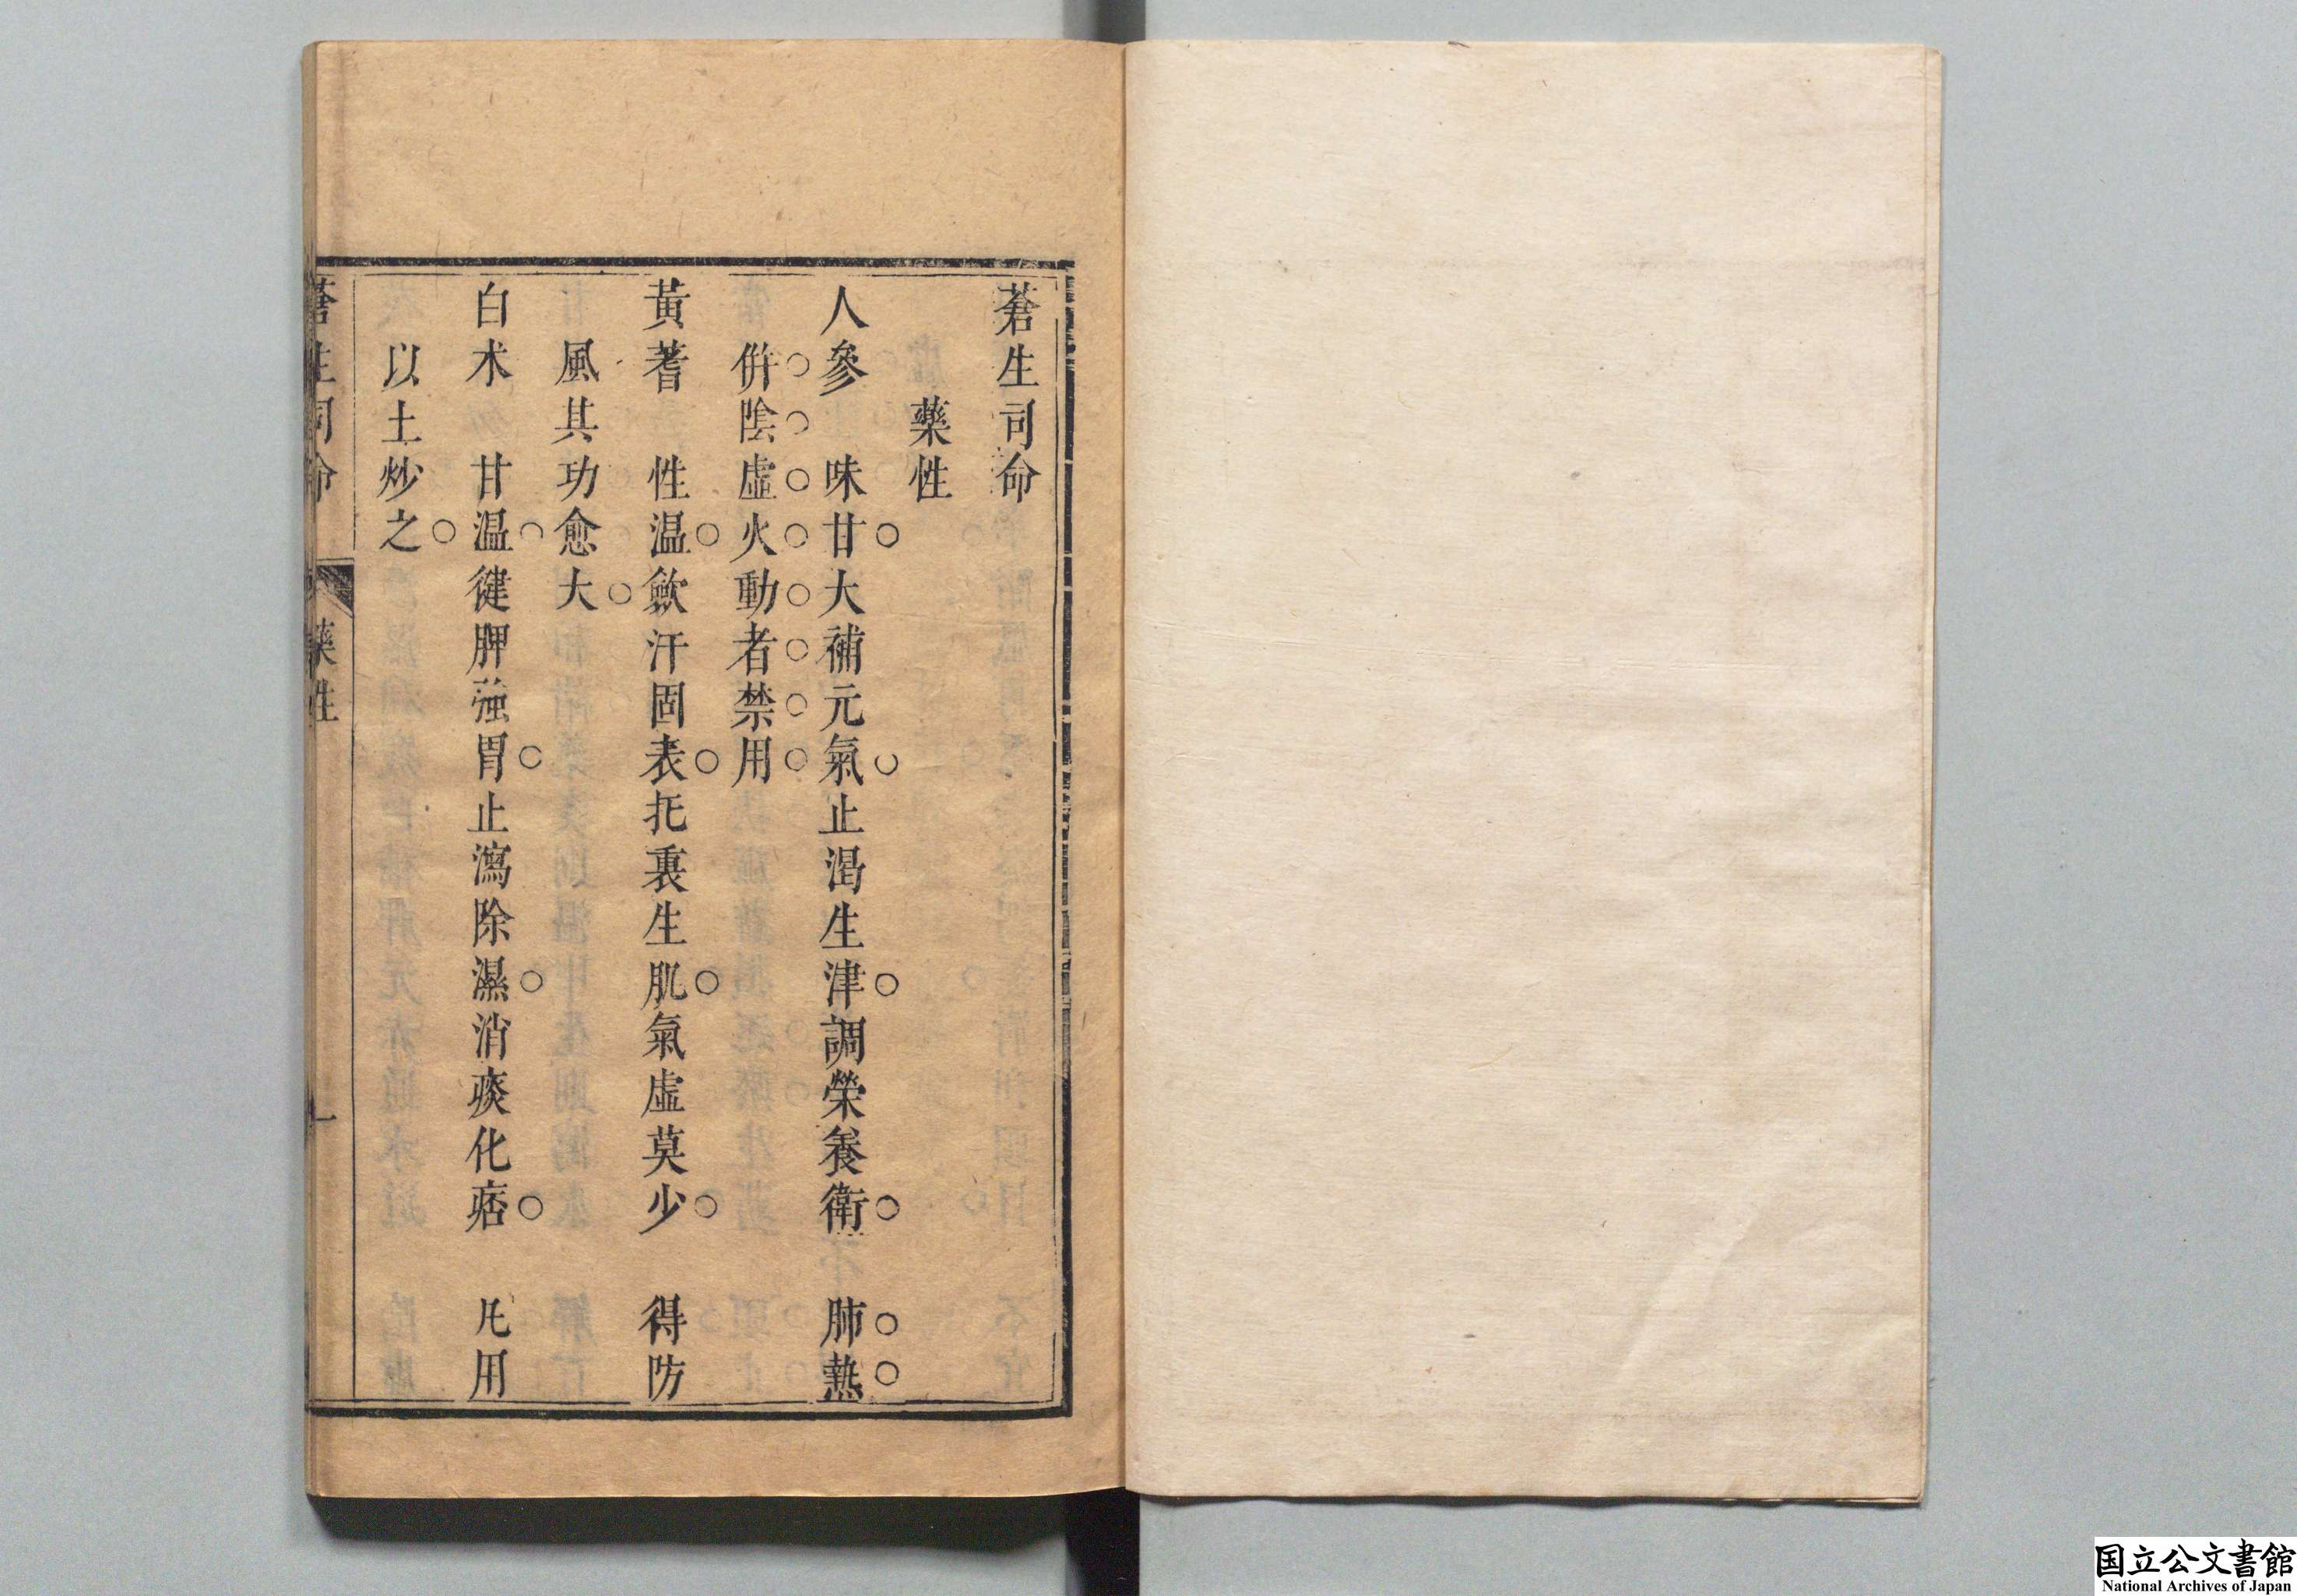 蒼生司命
藥性
人參　味甘大補元氣止渴生津調榮養衛　肺熱
併陰虛火動者禁用
黃蓍　性温歛汗固表托裏生肌氣虛莫少　得防
風其功愈大
白术　甘温健脾强胃止瀉除濕消痰化痞　凡用
以土炒之
蒼生司命　藥性　一
国立公文書館
National Archives of Japan